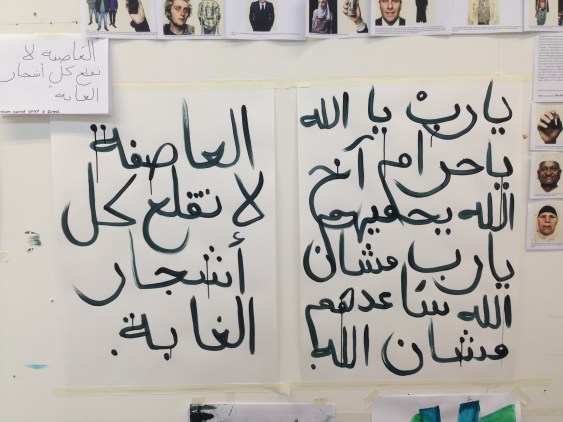 يارب يا الله
ياحرام آخ
الله يحميهم
يارب مشان
الله ساعدهم
مشان الله.
العاصفة
لا تقلع كل
أشجار
الغابة.
العاصفة لا
تقلع كل أشجار
الغابة